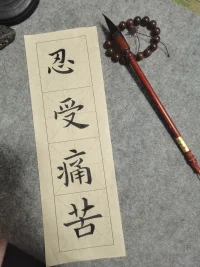 忍受痛苦